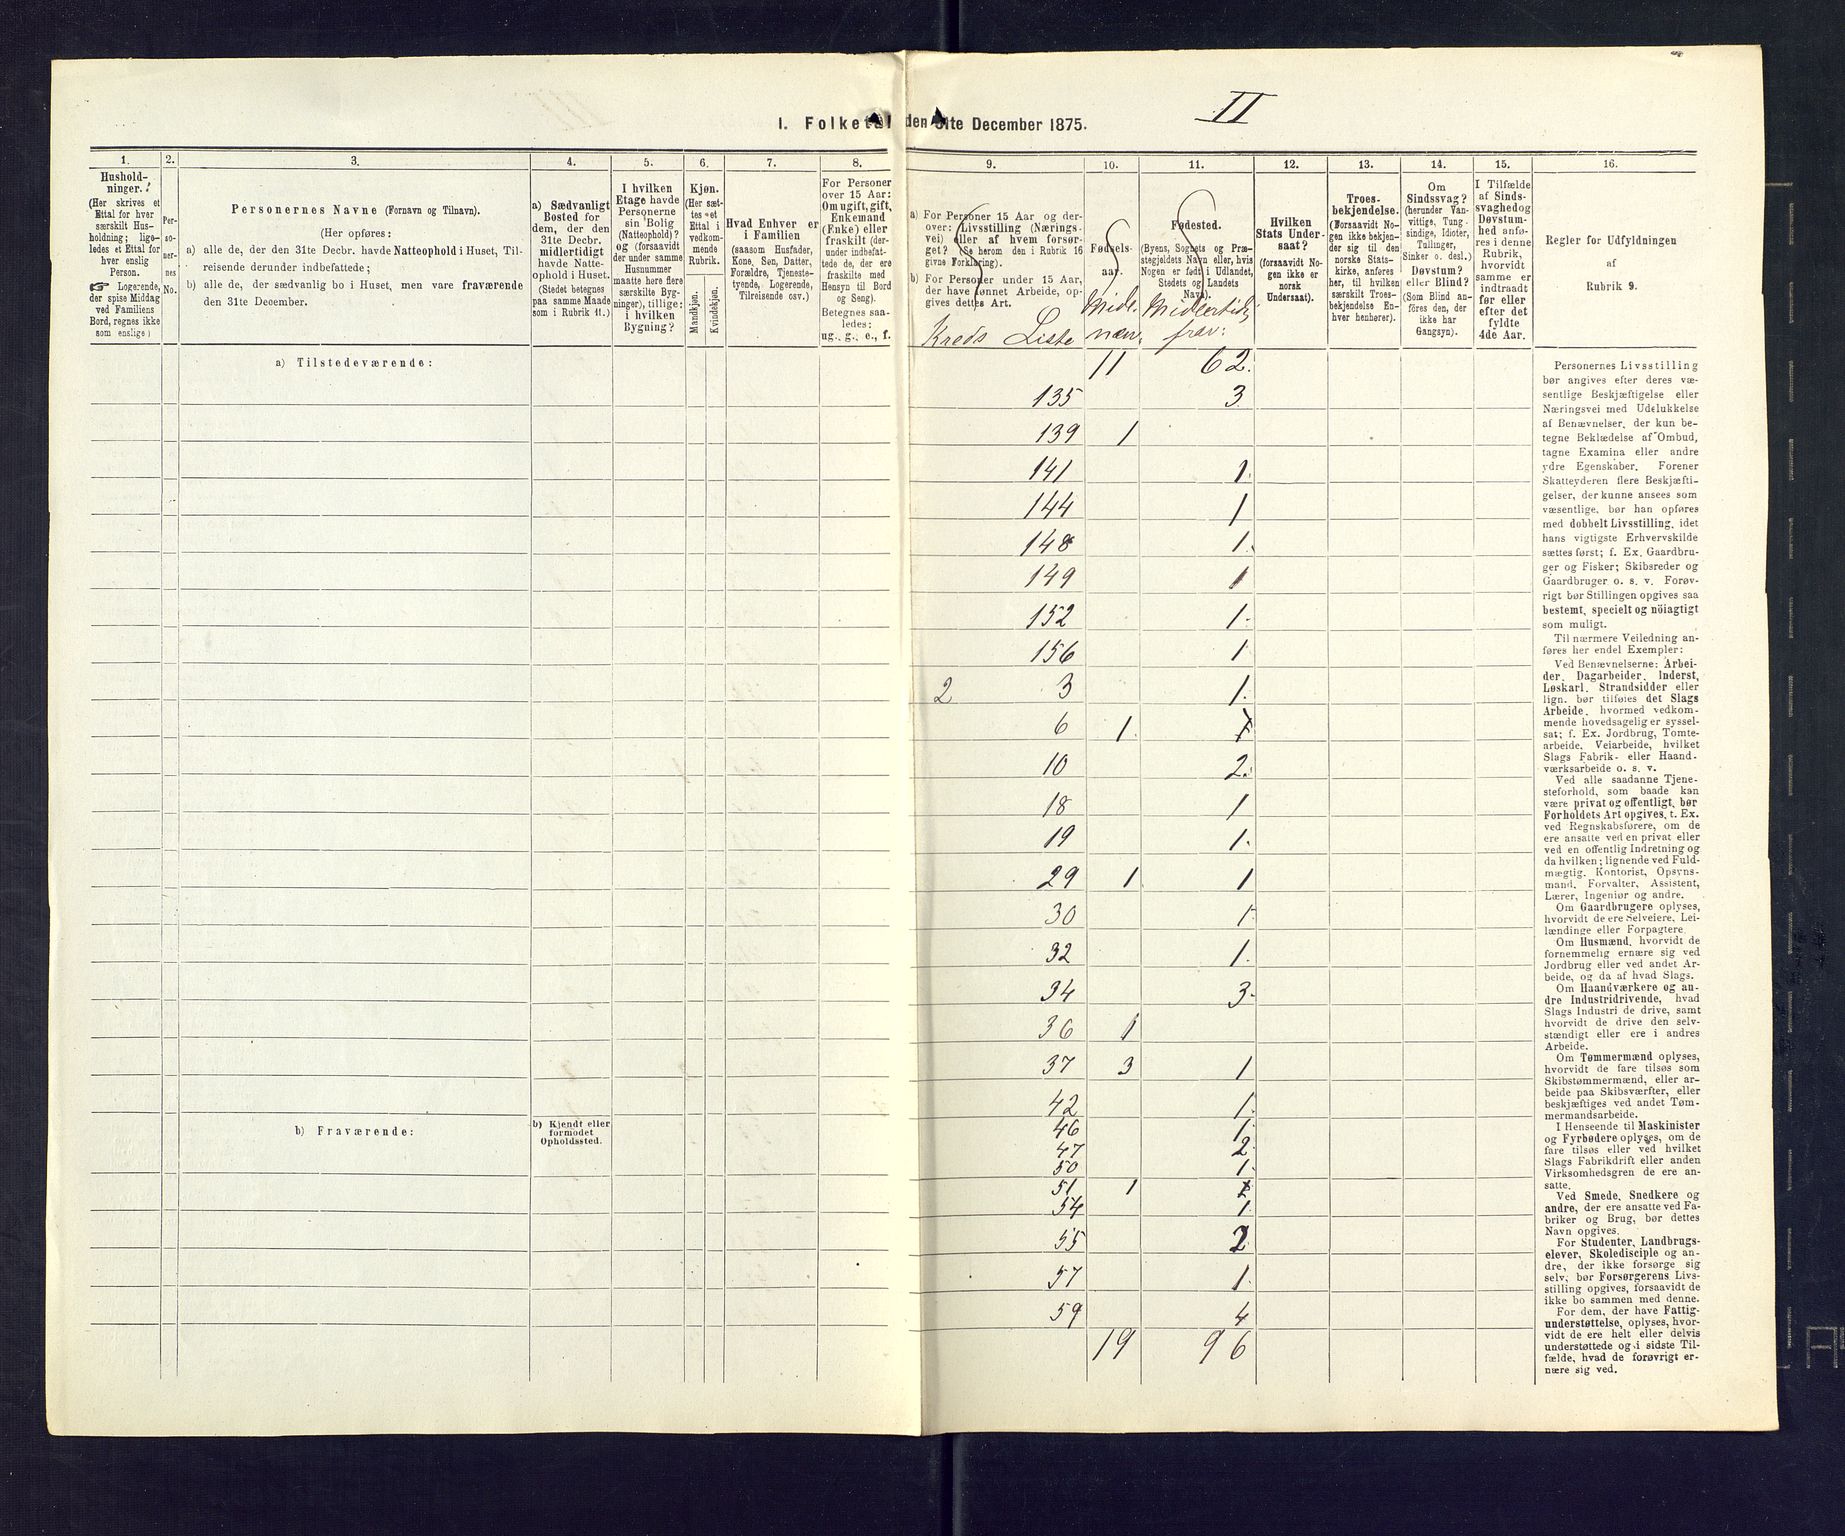 II
I. Folketal den 31te December 1875.
1. 2. 3. 4. 5. 6. 7. 8. 9. 10. 11. 12. 13. 14. 15. 16.
Hushold-
ninger.
(Her skrives et
Ettal for hver
særskilt Hus-
holdning; lige-
ledes et Ettal for
hver enslig
Person.
☞ Logerende,
der spise Middag
ved Familiens
Bord, regnes ikke
som enslige)
Per-
so-
ner-
nes
No.
Personernes Navne (Fornavn og Tilnavn).
(Her opføres:
a) alle de, der den 31te Decbr. havde Natteophold i Huset, Til-
reisende derunder indbefattede;
b) alle de, der sædvanlig bo i Huset, men vare fraværende
den 31te December.
a) Sædvanligt
Bosted for
dem, der den
31te Decbr.
midlertidigt
havde Natte-
ophold i Huset.
(Stedet betegnes
paa samme Maade
som i Rubrik 11.)
I hvilken
Etage havde
Personerne
sin Bolig
(Natteophold)?
og (forsaavidt
der under samme
Husnummer
maatte høre flere
særskilte Byg-
ninger), tillige:
i hvilken
Bygning?
Kjøn.
(Her sæt-
tes et
Ettal i
vedkom-
mende
Rubrik.
Mandkjøn.
Kvindekjøn.
Hvad Enhver er
i Familien
(saasom Husfader,
Kone, Søn, Datter,
Forældre, Tjeneste-
tyende, Logerende,
Tilreisende osv.)
For Personer
over 15 Aar:
Om ugift, gift,
Enkemand
(Enke) eller
fraskilt (der-
under indbefat-
tede de, der ere
fraskilte med
Hensyn til Bord
og Seng).
Betegnes saa-
ledes:
ug., g., e., f.
a) For Personer 15 Aar og der-
over: Livsstilling (Nærings-
vei) eller af hvem forsør-
get? (Se herom den i Rubrik 16
givne Forklaring).
b) For Personer under 15 Aar,
der have lønnet Arbeide, op-
gives dettes Art.
Kreds Liste
Fødsels-
aar.
Midl.
nær.
Fødested.
(Byens, Sognets og Præ-
stegjeldets Navn eller, hvis
Nogen er født i Udlandet,
Stedets og Landets
Navn).
Midlertid.
frav:
Hvilken
Stats Under-
saat?
(forsaavidt No-
gen ikke er
norsk
Undersaat).
Troes-
bekjendelse.
(Forsaavidt No-
gen ikke bekjen-
der sig til den
norske Stats-
kirke, anføres
her, til hvilken
særskilt Troes-
bekjendelse En-
hver henhører).
Om
Sindssvag?
(herunder Van-
vittige, Tung-
sindige, Idioter,
Tullinger,
Sinker o. desl.)
Døvstum?
eller Blind?
(Som Blind an-
føres den, der
ikke har
Gangsyn).
I Tilfælde
af Sinds-
svaghed og
Døvstum-
hed anfø-
res i denne
Rubrik,
hvorvidt
samme er
indtraadt
før eller
efter det
fyldte
4de Aar.
Regler for Udfyldningen
af
Rubrik 9.
a) Tilstedeværende:
b) Fraværende:
b) Kjendt eller
formodet
Opholdssted.
11 62.
135 3
139 1
141 1.
144 1
148 1.
149 1
152 1.
156 1
2 3 1.
6 1.
10 2.
18 1
19 1.
29 1 1
30 1
32 1.
34 3.
36 1
37 3 1
42 1.
46 1.
47 2.
50 1.
51 1
54 1.
55 2
57 1.
59 4
19 96
Personernes Livsstilling
bør angives efter deres væ-
sentlige Beskjæftigelse eller
Næringsvei med Udelukkelse
af Benævnelser, der kun be-
tegne Beklædelse af Ombud,
tagne Examina eller andre
ydre Egenskaber. Forener
Skatteyderen flere Beskjæfti-
gelser, der kunne ansees som
væsentlige, bør han opføres
med dobbelt Livsstilling, idet
hans vigtigste Erhvervskilde
sættes først; f. Ex. Gaardbru-
ger og Fisker; Skibsreder og
Gaardbruger o. s. v. Forøv-
rigt bør Stillingen opgives saa
bestemt, specielt og nöiagtigt
som muligt.
Til nærmere Veiledning an-
føres her endel Exempler:
Ved Benævnelserne: Arbei-
der, Dagarbeider, Inderst,
Løskarl, Strandsidder eller
lign. bør tilføies det Slags
Arbeide, hvormed vedkom-
mende hovedsagelig er syssel-
sat; f. Ex. Jordbrug, Tomte-
arbeide, Veiarbeide, hvilket
Slags Fabrik- eller Haand-
værksarbeide o. s. v.
Ved alle saadanne Tjene-
steforhold, som baade kan
være privat og offentligt, bør
Forholdets Art opgives, t. Ex.
ved Regnskabsførere, om de
ere ansatte ved en privat eller
ved en offentlig Indretning og
da hvilken; lignende ved Fuld-
mægtig, Kontorist, Opsyns-
mand, Forvalter, Assistent,
Lærer, Ingeniør og andre.
Om Gaardbrugere oplyses,
hvorvidt de ere Selveiere, Lei-
lændinge eller Forpagtere.
Om Husmænd, hvorvidt de
fornemmelig ernære sig ved
Jordbrug eller ved andet Ar-
beide, og da af hvad Slags.
Om Haandværkere og an-
dre Industridrivende, hvad
Slags Industri de drive, samt
hvorvidt de drive den selv-
stændigt eller ere i andres
Arbeide.
Om Tømmermænd oplyses,
hvorvidt de fare tilsøs som
Skibstømmermænd, eller ar-
beide paa Skibsværfter, eller
beskjæftiges ved andet Tøm-
mermandsarbeide.
I Henseende til Maskinister
og Fyrbødere oplyses, om de
fare tilsøs eller ved hvilket
Slags Fabrikdrift eller anden
Virksomhedsgren de ere an-
satte.
Ved Smede, Snedkere og
andre, der ere ansatte ved Fa-
briker og Brug, bør dettes
Navn opgives.
For Studenter, Landbrugs-
elever, Skoledisciple og an-
dre, der ikke forsørge sig
selv, bør Forsørgerens Livs-
stilling opgives, forsaavidt de
ikke bo sammen med denne.
For dem, der have Fattig-
understøttelse, oplyses, hvor-
vidt de ere helt eller delvis
understøttede og i sidste Til-
fælde, hvad de forøvrigt er-
nære sig ved.